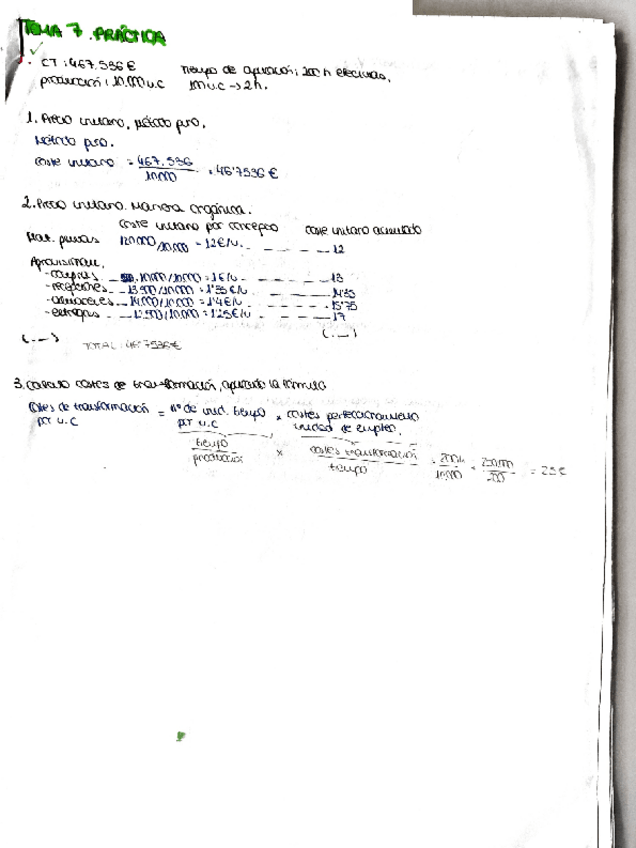 TEMA 7. PRÁCTICA
CT: 467.536€ Tiempo de operación: 200 h efectivas.
producción: 10.000 u.c 100 u.c -> 2h.
1. Precio unitario. Método puro.
Método puro.
coste unitario = 467.536 / 10.000 = 46'7536 €
2. Precio unitario. Manera orgánica.
coste unitario por concepto coste unitario acumulado
Mat. primas 120.000/10.000 = 12€/u. 12
- compras 10.000/10.000 = 1€/u 13
- recepciones 13.500/10.000 = 1'35€/u 14'35
- almacenes 14.000/10.000 = 1'4€/u 15'75
- entregas 12.500/10.000 = 1'25€/u 17
(...) (...)
TOTAL: 46'7536€
3. Calculo costes de transformación, aplicando la fórmula
costes de transformación por u.c = nº de unid. tiempo por u.c × costes perfeccionamiento unidad de empleo.
tiempo / producción × costes transformación / tiempo = 200h / 10.000 × 250.000 / 200 = 25€